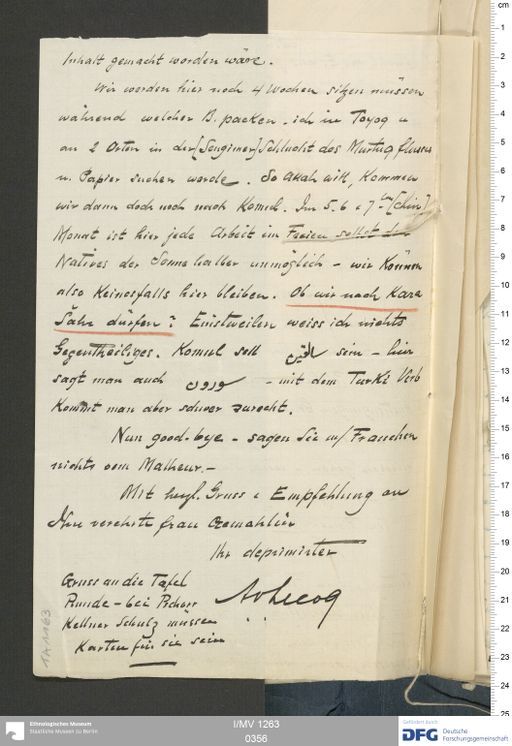 Inhalt gemacht worden wäre.
Wir werden hier noch 4 Wochen sitzen müssen
während welcher B. packen, ich in Toyoq u
an 2 Orten in der [Sengimer] Schlucht des Murtuq flusses
n. Papier suchen werde. So Allah will, kommen
wir dann doch noch nach Komul. Im 5. 6 & 7ten [Chin]
Monat ist hier jede Arbeit im Freien selbst den
Natives der Sonne halber unmöglich – wir können
also keinesfalls hier bleiben. Ob wir nach Kara
Šahr dürfen? Einstweilen weiss ich nichts
Gegentheiliges. Komul soll sein – hier
sagt man auch – mit dem Turki Verb
kommt man aber schwer zurecht.
Nun good-bye – sagen Sie m/ Frauchen
nichts vom Malheur. –
Mit herzl. Gruss & Empfehlung an
Ihre verehrte Frau Gemahlin
Ihr deprimirter
AvLecoq
Gruss an die Tafel
Runde – bei Pschorr
Kellner Schulz müssen
Karten für sie sein
TA 1163
Ethnologisches Museum
Staatliche Museen zu Berlin
I/MV 1263
0356
Gefördert durch
DFG Deutsche
Forschungsgemeinschaft
cm
1
2
3
4
5
6
7
8
9
10
11
12
13
14
15
16
17
18
19
20
21
22
23
24
25